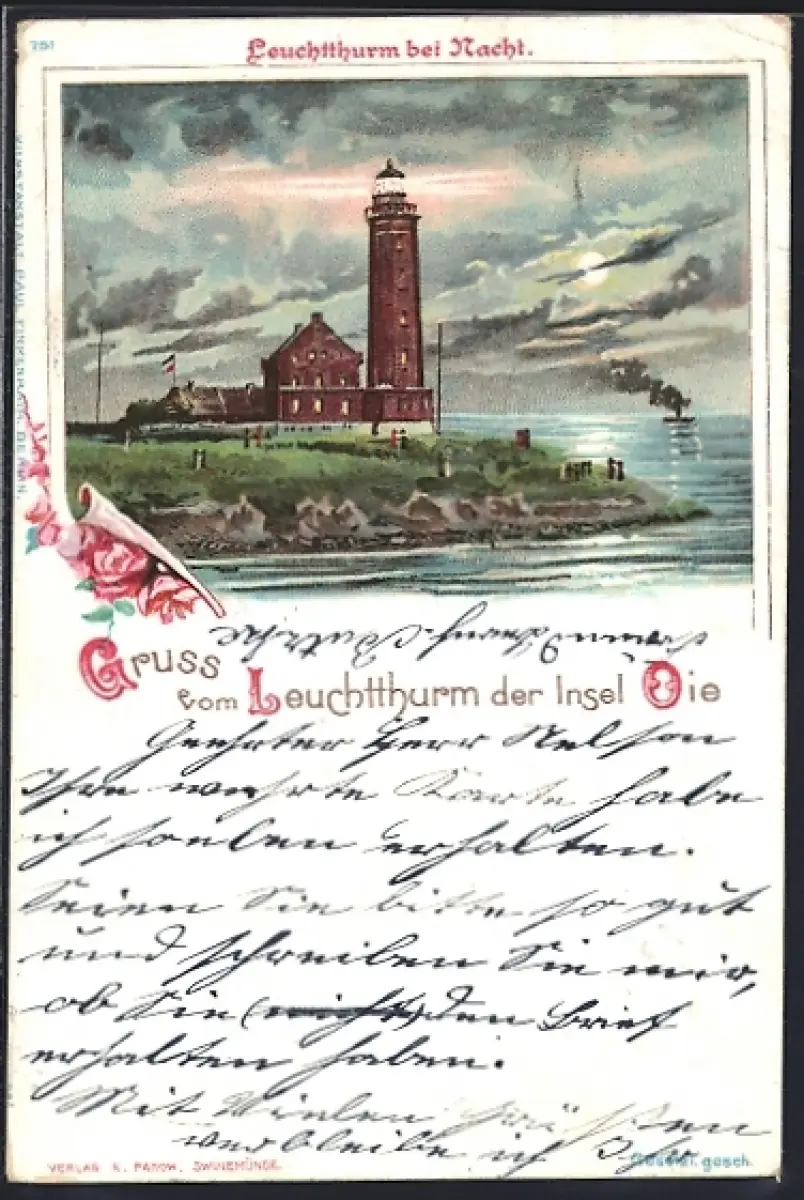 751
Leuchtthurm bei Nacht.
KUNSTANSTALT PAUL FINKENRATH, BERLIN.
Gruss
vom Leuchtthurm der Insel Oie
Geehrter Herr Nelson
Ihre werthe Karte habe
ich soeben erhalten.
Seien Sie bitte so gut
und schreiben Sie mir,
ob Sie (nicht) den Brief
erhalten haben.
Mit Vielen Grüssen
verbleibe ich Ihr
VERLAG K. PANOW, SWINEMÜNDE.
Gesetzl. gesch.